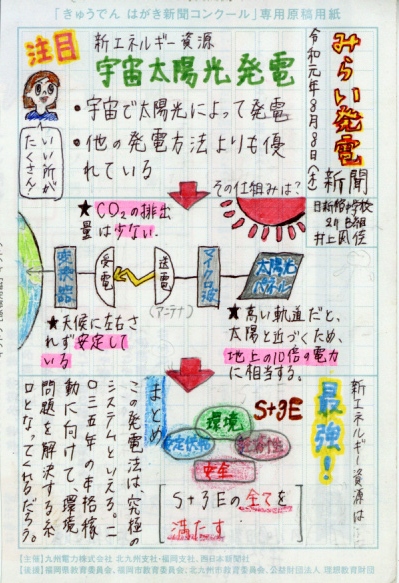 「きゅうでん はがき新聞コンクール」専用原稿用紙
みらい発電
新聞
令和元年8月8日(木)
井上
注目
新エネルギー資源
宇宙太陽光発電
・宇宙で太陽光によって発電
・他の発電方法よりも優
れている
いい所が
たくさん!
その仕組みは?
★CO₂の排出
量は少ない.
太陽光
パネル
マイクロ波
送電
(アンテナ)
受電
★天候に左右さ
れず安定して
いる
★高い軌道だと、
太陽と近づくため、
地上の10倍の電力
に相当する。
新エネルギー資源は…
最強!
S+3E
環境
安定供給
経済性
安全
S+3Eの全てを
満たす
まとめ
この発電法は、究極の
システムといえる。二
〇三五年の本格稼
動に向けて、環境
問題を解決する糸
口となってくれるだろう。
【主催】九州電力株式会社 北九州支社・福岡支社、西日本新聞社
【後援】福岡県教育委員会、福岡市教育委員会、北九州市教育委員会、公益財団法人 理想教育財団